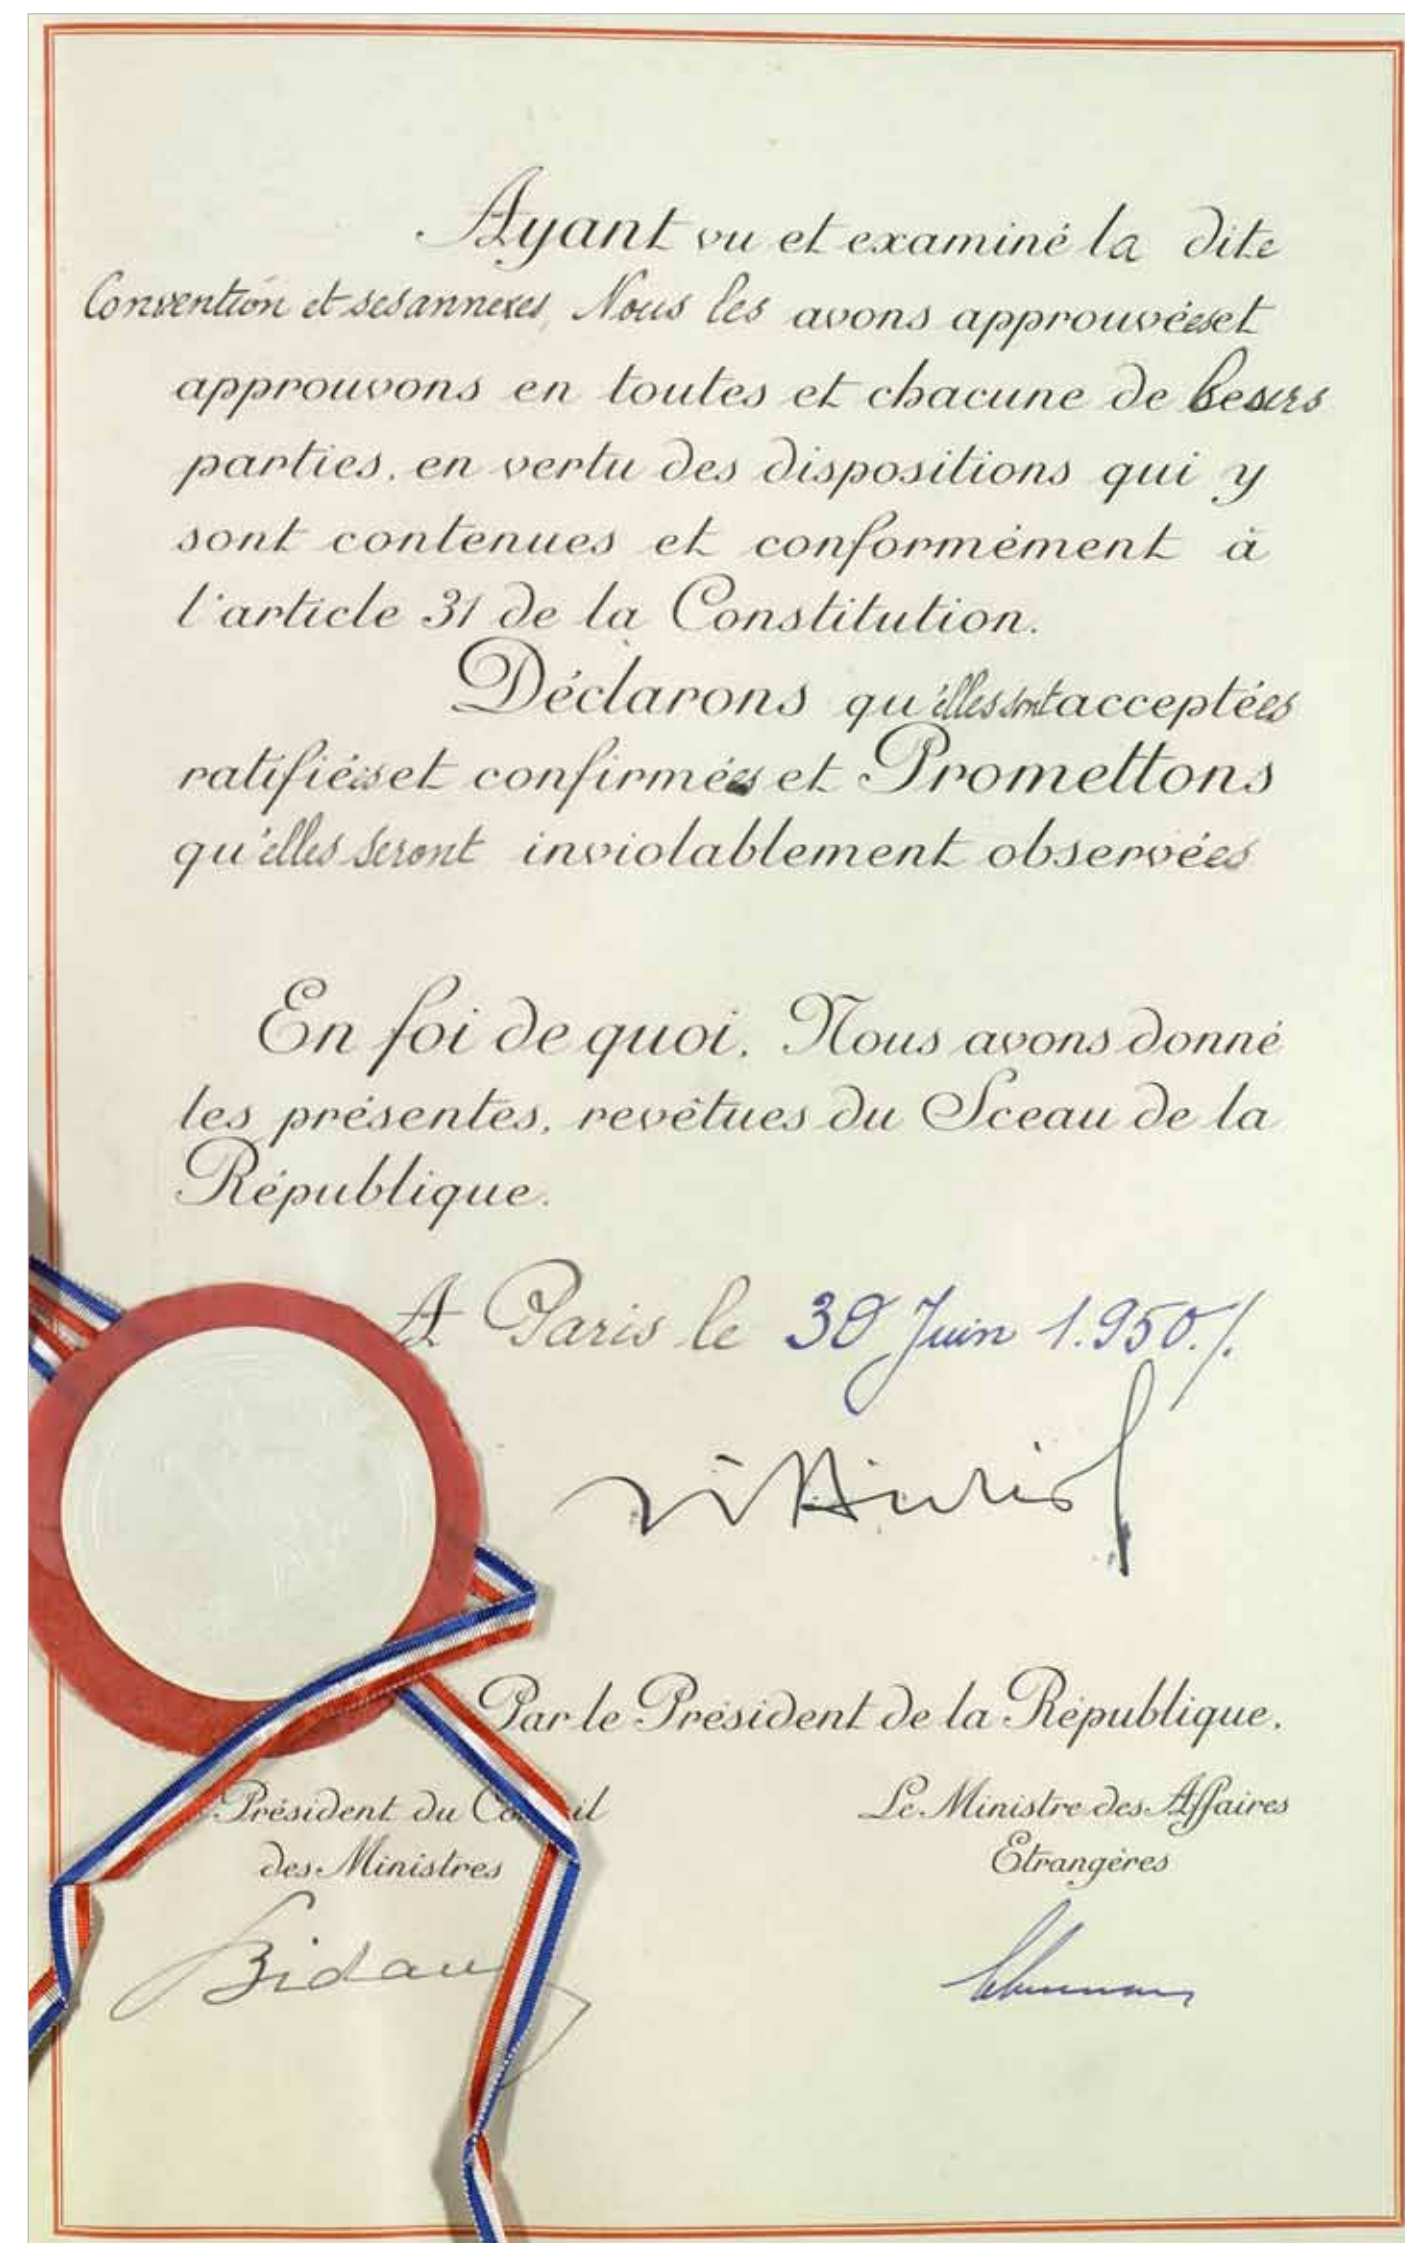 Ayant vu et examiné la dite
Convention et ses annexes, Nous les avons approuvées et
approuvons en toutes et chacune de leurs
parties, en vertu des dispositions qui y
sont contenues et conformément à
l'article 31 de la Constitution.
Déclarons qu'elles sont acceptées
ratifiées et confirmées et Promettons
qu'elles seront inviolablement observées
En foi de quoi, Nous avons donné
les présentes, revêtues du Sceau de la
République.
A Paris le 30 Juin 1.950./.
Par le Président de la République.
Président du Conseil
des Ministres
Le Ministre des Affaires
Etrangères
Bidault
Schuman